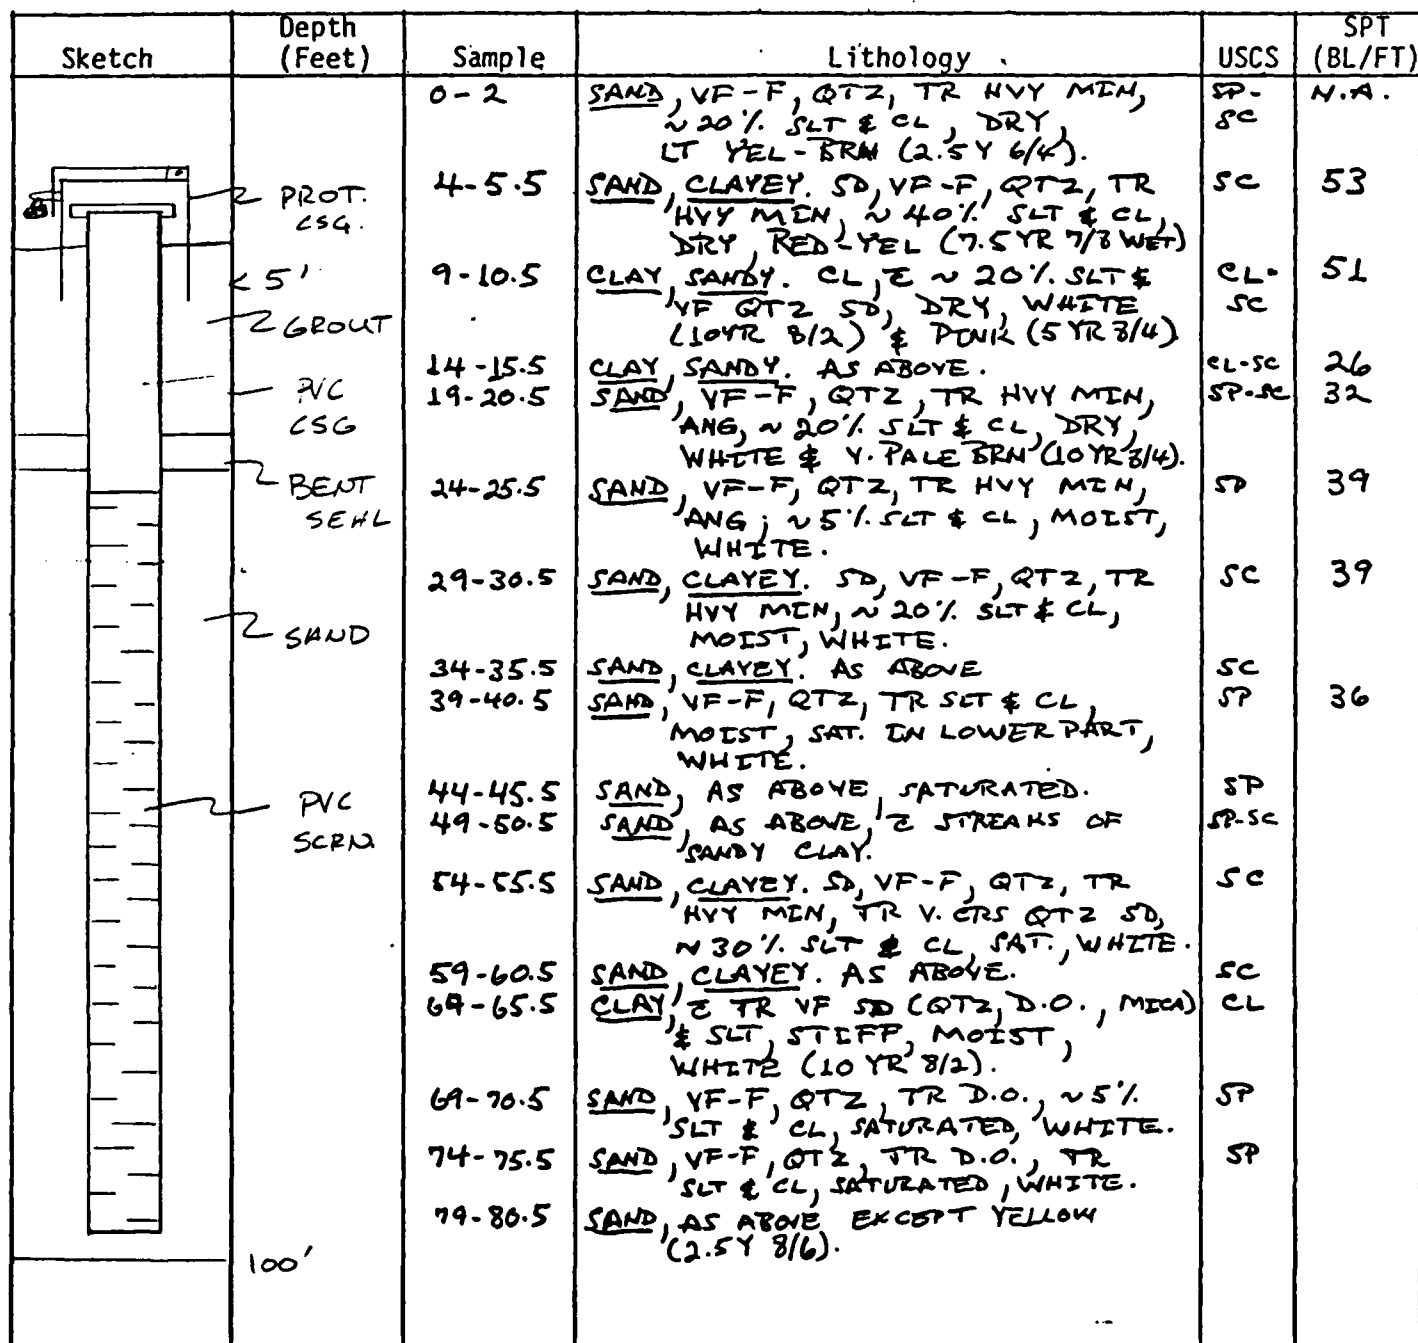 Sketch Depth (Feet) Sample Lithology USCS SPT (BL/FT)
0-2 SAND, VF-F, QTZ, TR HVY MIN, SP- N.A.
~20% SLT & CL, DRY, SC
LT YEL-BRN (2.5Y 6/4).
PROT. CSG.
4-5.5 SAND, CLAYEY. SD, VF-F, QTZ, TR SC 53
HVY MIN, ~40% SLT & CL,
DRY, RED-YEL (7.5YR 7/8 WET)
< 5'
9-10.5 CLAY, SANDY. CL, c ~20% SLT & CL- 51
VF QTZ SD, DRY, WHITE SC
(10YR 8/2) & PINK (5YR 8/4)
GROUT
14-15.5 CLAY, SANDY. AS ABOVE. CL-SC 26
PVC CSG
19-20.5 SAND, VF-F, QTZ, TR HVY MIN, SP-SC 32
ANG, ~20% SLT & CL, DRY,
WHITE & V. PALE BRN (10YR 8/4).
BENT SEAL
24-25.5 SAND, VF-F, QTZ, TR HVY MIN, SP 39
ANG; ~5% SLT & CL, MOIST,
WHITE.
29-30.5 SAND, CLAYEY. SD, VF-F, QTZ, TR SC 39
HVY MIN, ~20% SLT & CL,
MOIST, WHITE.
SAND
34-35.5 SAND, CLAYEY. AS ABOVE SC
39-40.5 SAND, VF-F, QTZ, TR SLT & CL, SP 36
MOIST, SAT. IN LOWER PART,
WHITE.
44-45.5 SAND, AS ABOVE, SATURATED. SP
PVC SCRN
49-50.5 SAND, AS ABOVE, c STREAKS OF SP-SC
SANDY CLAY.
54-55.5 SAND, CLAYEY. SD, VF-F, QTZ, TR SC
HVY MIN, TR V. CRS QTZ SD,
~30% SLT & CL, SAT., WHITE.
59-60.5 SAND, CLAYEY. AS ABOVE. SC
64-65.5 CLAY, c TR VF SD (QTZ, D.O., MICA) CL
& SLT, STIFF, MOIST,
WHITE (10 YR 8/2).
69-70.5 SAND, VF-F, QTZ, TR D.O., ~5% SP
SLT & CL, SATURATED, WHITE.
74-75.5 SAND, VF-F, QTZ, TR D.O., TR SP
SLT & CL, SATURATED, WHITE.
79-80.5 SAND, AS ABOVE EXCEPT YELLOW
(2.5Y 8/6).
100'